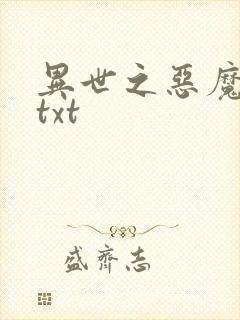 異世之惡魔
txt
盛齊志